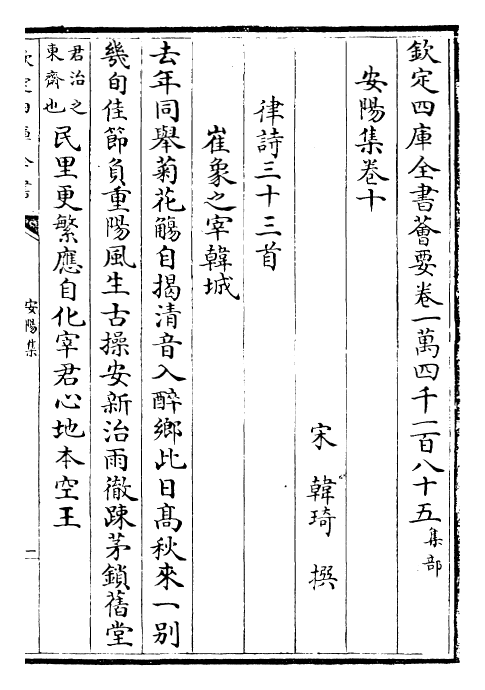 欽定四庫全書薈要卷一萬四千一百八十五集部
安陽集卷十
宋 韓琦 撰
律詩三十三首
崔象之宰韓城
去年同舉菊花觴自揭清音入醉鄉比日髙秋來一别
幾旬佳節負重陽風生古操安新治雨徹踈茅鎖舊堂
君治之
東齋也
民里更繁應自化宰君心地本空王
欽定四庫全書
安陽集
一